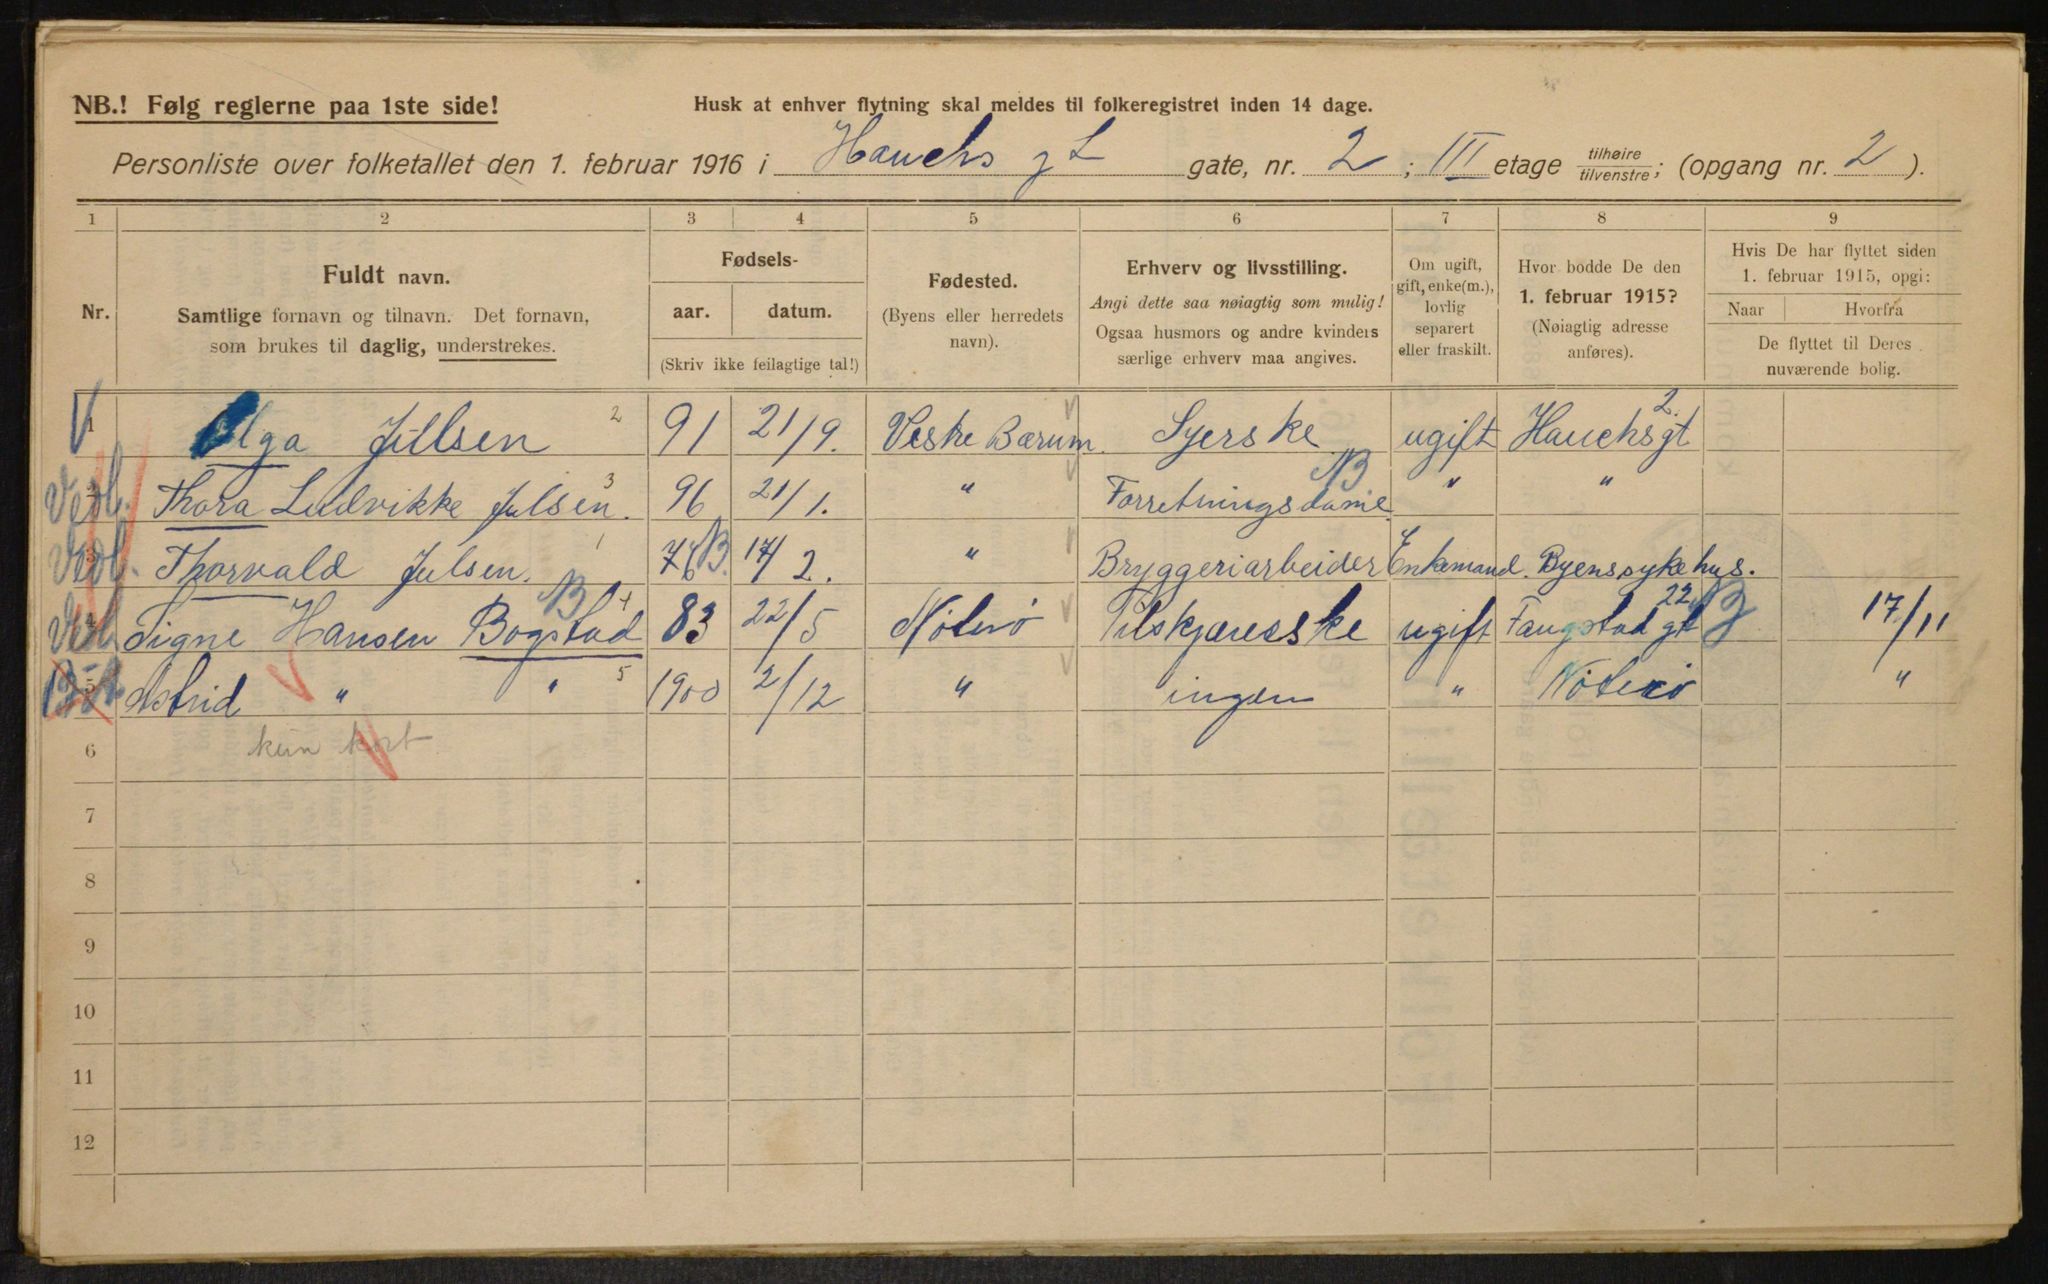 NB.! Følg reglerne paa 1ste side!
Husk at enhver flytning skal meldes til folkeregistret inden 14 dage.
Personliste over folketallet den 1. februar 1916 i Hauchs gt gate, nr. 2; III etage tilhøire tilvenstre; (opgang nr. 2).
1 2 3 4 5 6 7 8 9
Nr.
Fuldt navn.
Samtlige fornavn og tilnavn. Det fornavn,
som brukes til daglig, understrekes.
Fødsels-
aar. datum.
(Skriv ikke feilagtige tal!)
Fødested.
(Byens eller herredets
navn).
Erhverv og livsstilling.
Angi dette saa nøiagtig som mulig!
Ogsaa husmors og andre kvinders
særlige erhverv maa angives.
Om ugift,
gift, enke(m.),
lovlig
separert
eller fraskilt.
Hvor bodde De den
1. februar 1915?
(Nøiagtig adresse
anføres).
Hvis De har flyttet siden
1. februar 1915, opgi:
Naar Hvorfra
De flyttet til Deres
nuværende bolig.
1 Olga Julsen 2 91 21/9. Veske Bærum. Syerske ugift Hauchsgt 2.
Vedl. 2 Thora Ludvikke Julsen. 3 96 21/1. " Forretningsdame B " "
Vedl. 3 Thorvald Julsen. 1 76 B. 17/2. " Bryggeriarbeider Enkemand. Byenssykehus.
Vedl. 4 Signe Hansen Bogstad B 4 83 22/5 Nöterö ugift 22 B 17/11
5 Astrid " " 5 1900 2/12 " ingen " Nöterö "
6 kun kort
7
8
9
10
11
12